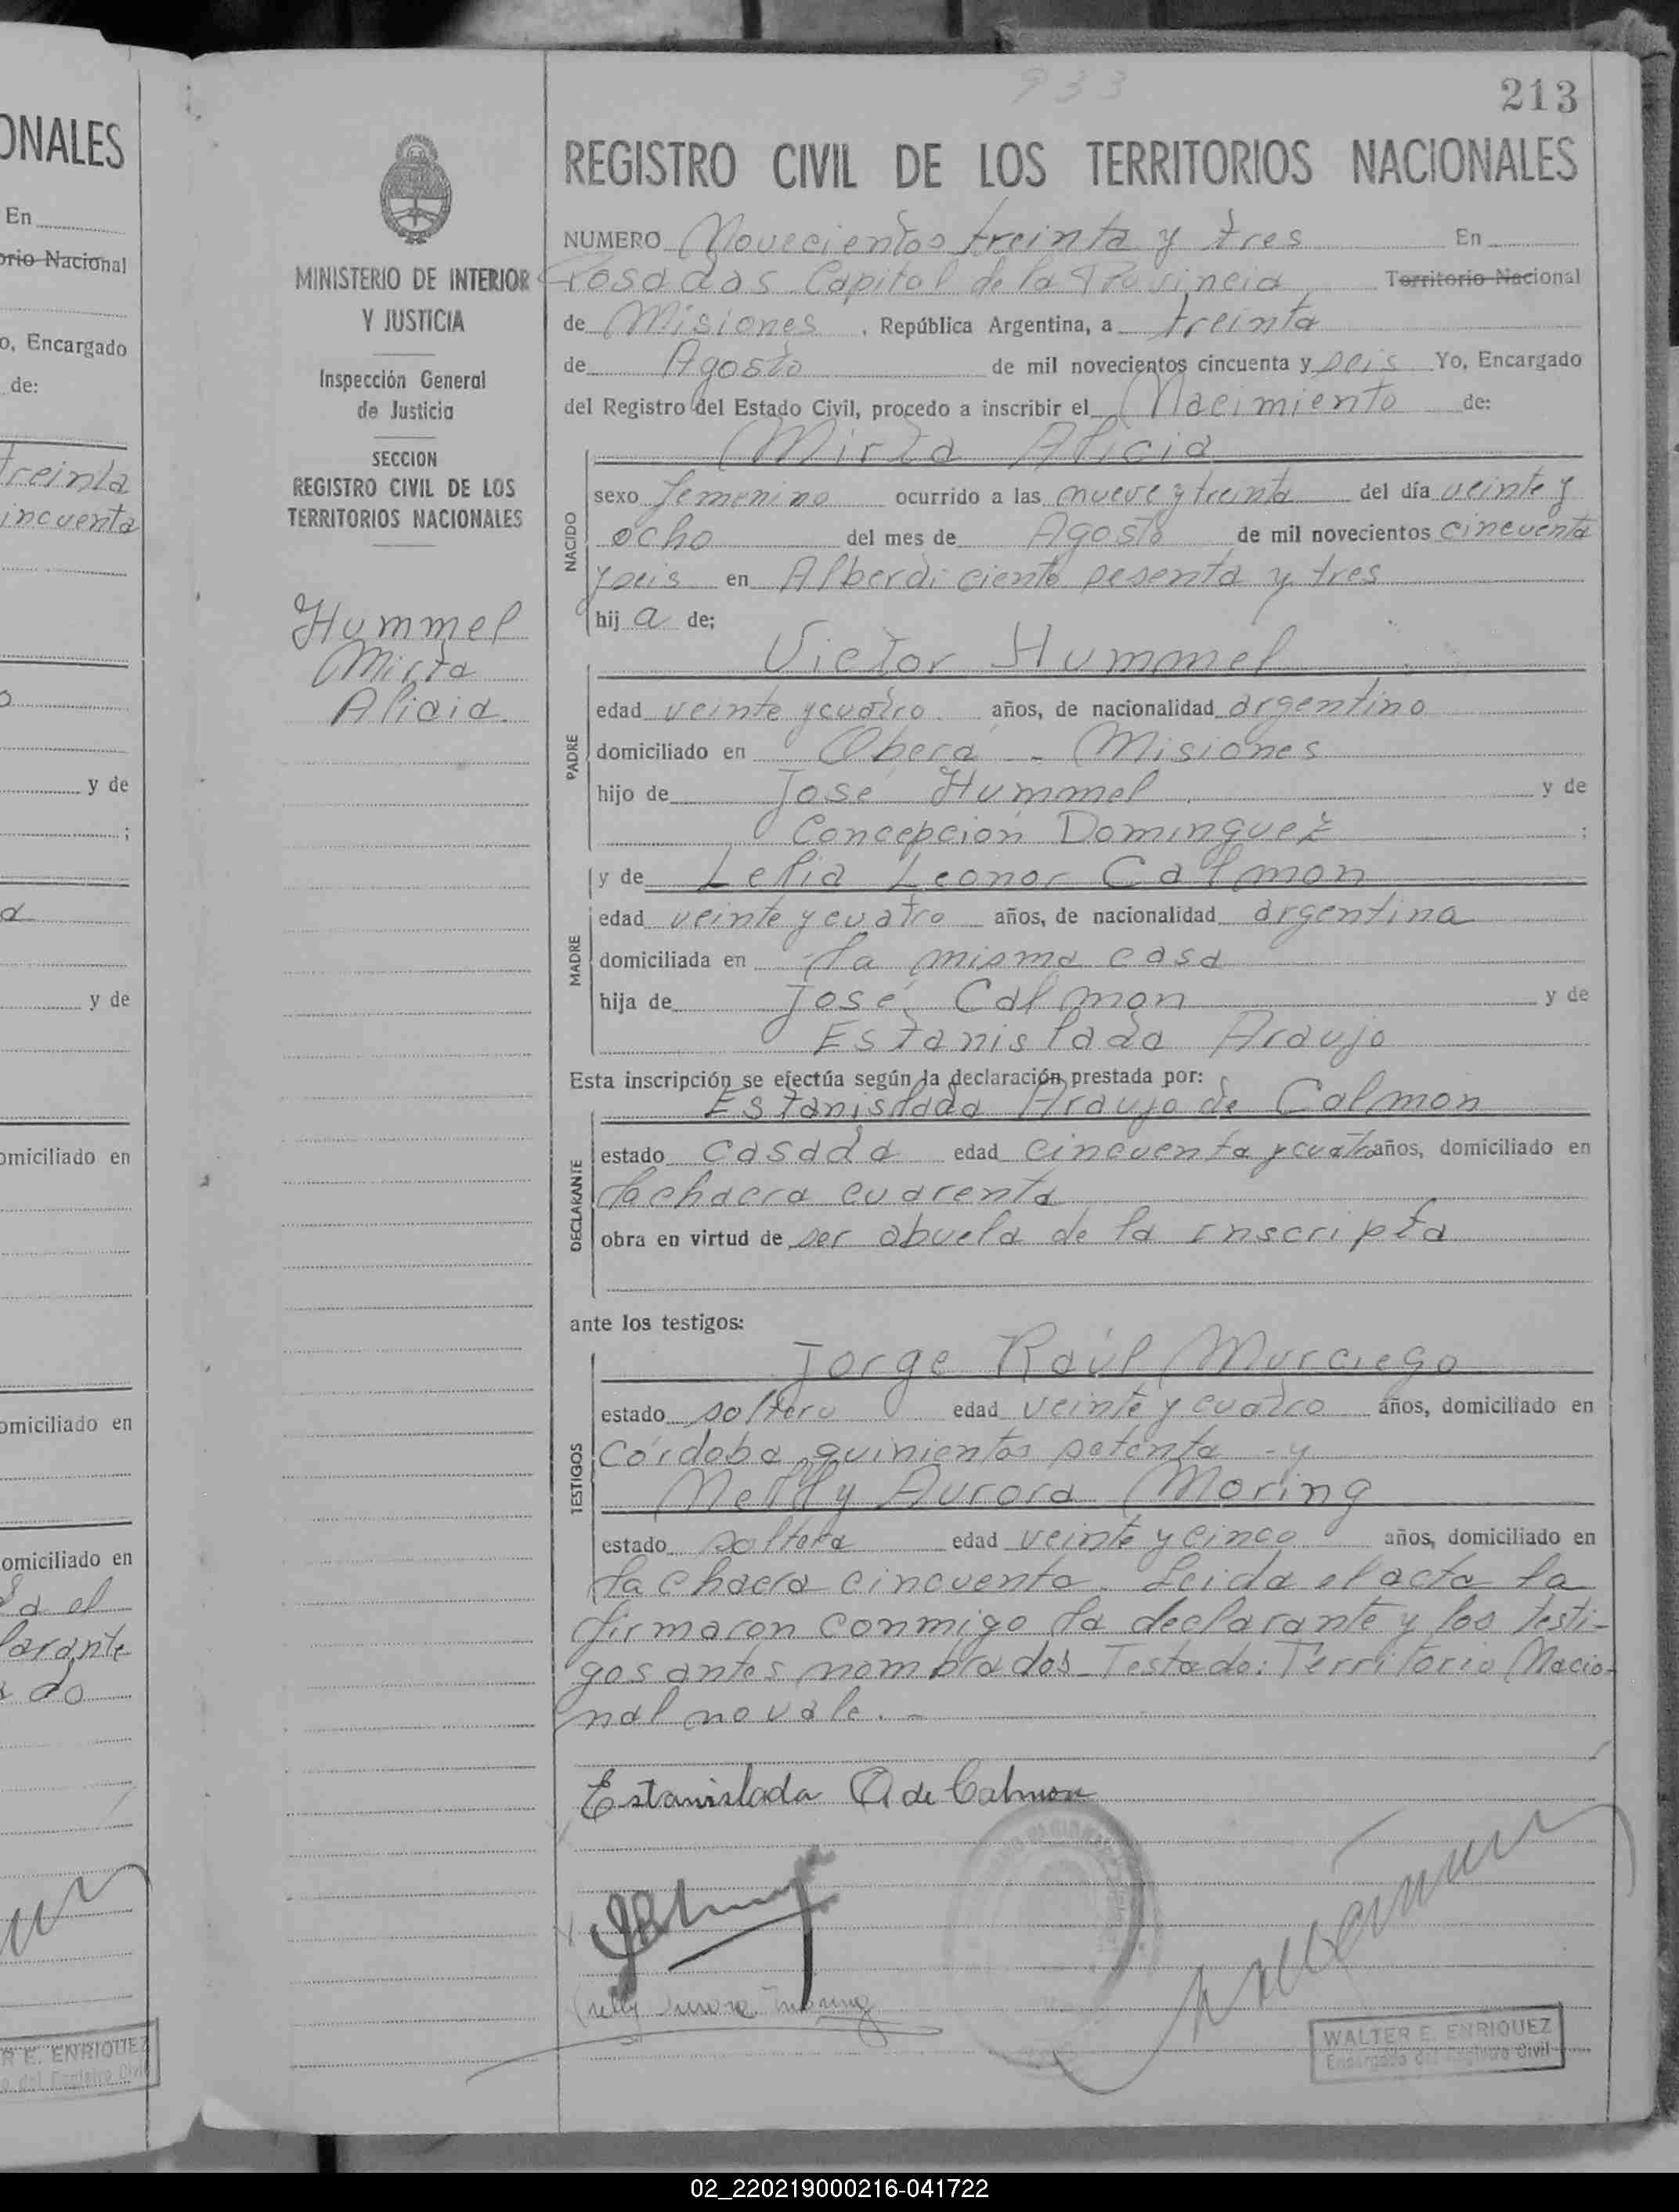 ONALES
En
orio Nacional
o, Encargado
de:
treinta
incuenta
y de
;
a
y de
omiciliado en
omiciliado en
omiciliado en
a el
larante
R E. ENRIQUEZ
o del Registro Civil
MINISTERIO DE INTERIOR
Y JUSTICIA
Inspección General
de Justicia
SECCION
REGISTRO CIVIL DE LOS
TERRITORIOS NACIONALES
Hummel
Mirta
Alicia
933
213
REGISTRO CIVIL DE LOS TERRITORIOS NACIONALES
NUMERO Novecientos treinta y tres En
Posadas Capital de la Provincia Territorio Nacional
de Misiones, República Argentina, a treinta
de Agosto de mil novecientos cincuenta y seis Yo, Encargado
del Registro del Estado Civil, procedo a inscribir el Nacimiento de:
Mirta Alicia
NACIDO
sexo femenino ocurrido a las nueve y treinta del día veinte y
ocho del mes de Agosto de mil novecientos cincuenta
y seis en Alberdi ciento sesenta y tres
hij a de;
Victor Hummel
PADRE
edad veinte y cuatro años, de nacionalidad argentino
domiciliado en Oberá - Misiones
hijo de José Hummel y de
Concepción Dominguez ;
y de Lelia Leonor Calmon
MADRE
edad veinte y cuatro años, de nacionalidad argentina
domiciliada en la misma casa
hija de José Calmon y de
Estanislada Araujo
Esta inscripción se efectúa según la declaración prestada por:
Estanislada Araujo de Calmon
DECLARANTE
estado casada edad cincuenta y cuatro años, domiciliado en
la chacra cuarenta
obra en virtud de ser abuela de la inscripta
ante los testigos:
Jorge Raúl Murciego
TESTIGOS
estado soltero edad veinte y cuatro años, domiciliado en
Córdoba quinientos setenta - y
Nelly Aurora Moring
estado soltera edad veinte y cinco años, domiciliado en
la chacra cincuenta. Leida el acta la
firmaron conmigo la declarante y los testi-
gos antes nombrados - Testado: Territorio Nacio-
nal no vale. -
Estanislada A de Calmon
Nelly Aurora Moring
WALTER E. ENRIQUEZ
Encargado del Registro Civil
02_220219000216-041722